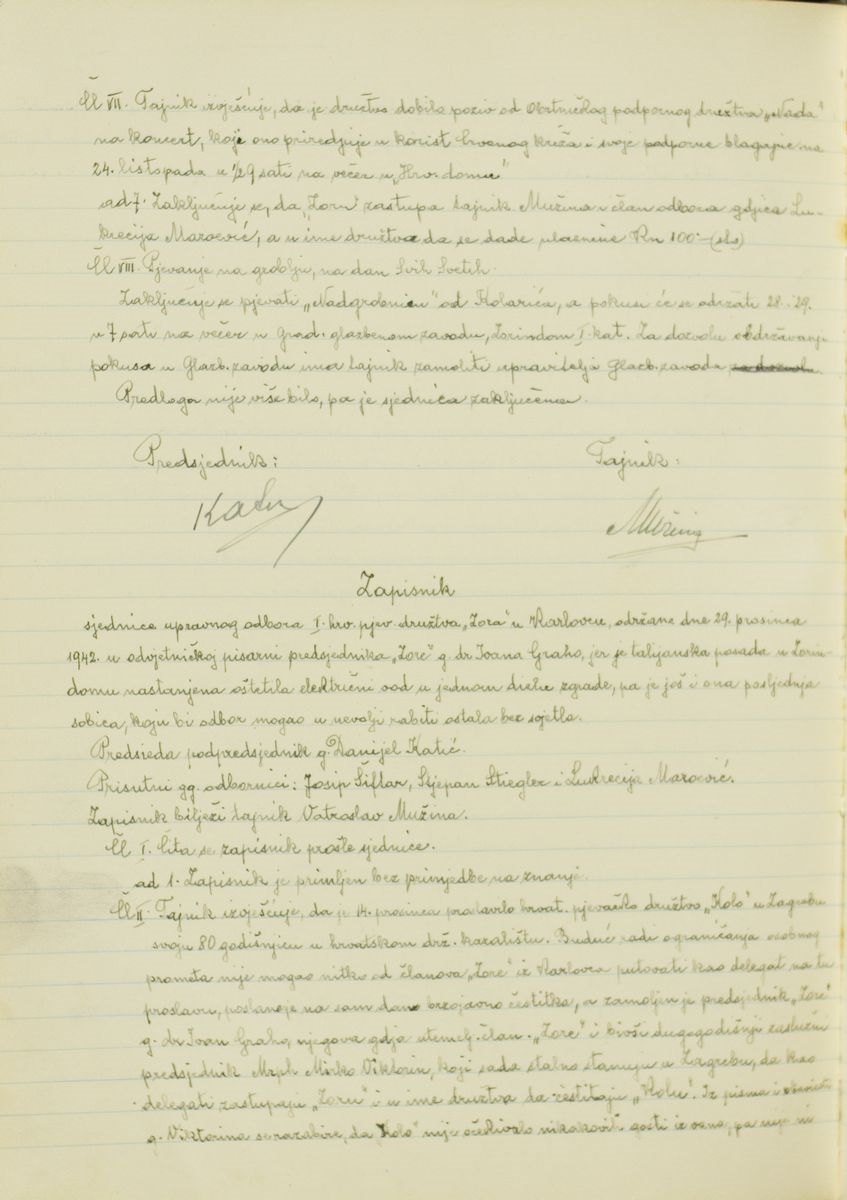 Čl VII. Tajnik izvješćuje, da je družtvo dobilo poziv od Obrtničkog podpornog družtva „Nada"
na koncert, koje ono priredjuje u korist Crvenog križa i svoje podporne blagajne na
24. listopada u ½9 sati na večer u „Hrv. domu"
ad 7. Zaključuje se, da „Zoru" zastupa tajnik Mužina i član odbora gdjica Lu-
krecija Marović, a u ime družtva da se dade ulaznine Kn 100·- (sto)
Čl VIII. Pjevanje na groblju, na dan Svih Svetih.
Zaključuje se pjevati „Nadgrobnicu" od Kolarića, a pokusi će se održati 28. 29.
u 7 sati na večer u Grad. glazbenom zavodu, Zorindom I. kat. Za dozvolu obdržavanja
pokusa u Glazb. zavodu ima tajnik zamoliti upravitelja Glazb. zavoda za dozvolu.
Predloga nije više bilo, pa je sjednica zaključena.
Predsjednik: Tajnik:
Katić Mužina
Zapisnik
sjednice upravnog odbora I. hrv. pjev. družtva „Zora" u Karlovcu, održane dne 29. prosinca
1942. u odvjetničkoj pisarni predsjednika „Zore" g. dr Ivana Graho, jer je talijanska posada u Zorin-
domu nastanjena oštetila električni vod u jednom dielu zgrade, pa je još i ona posljednja
sobica, koju bi odbor mogao u nevolji rabiti ostala bez svjetla.
Predsieda podpredsjednik g. Danijel Katić.
Prisutni gg. odbornici: Josip Šiftar, Stjepan Stiegler i Lukrecija Marović.
Zapisnik bilježi tajnik Vatroslav Mužina.
Čl I. Čita se zapisnik prošle sjednice.
ad 1. Zapisnik je primljen bez primjedbe na znanje.
Čl II. Tajnik izvješćuje, da je 14. prosinca proslavilo hrvat. pjevačko družtvo „Kolo" u Zagrebu
svoju 80 godišnjicu u hrvatskom drž. kazalištu. Budući radi ograničanja osobnog
prometa nije mogao nitko od članova „Zore" iz Karlovca putovati kao delegat na tu
proslavu, poslana je na sam dan brzojavno čestitka, a zamoljen je predsjednik „Zore"
g. dr Ivan Graho, njegova gdja utemelj. član. „Zore" i bivši dugogodišnji zaslužni
predsjednik Mrph Mirko Viktorin, koji sada stalno stanuju u Zagrebu, da kao
delegati zastupaju „Zoru" i u ime družtva da čestitaju „Kolu". Iz pisma i
g. Viktorina se razabire, da „Kolo" nije očekivalo nikakovih gosti iz vana, pa nije ni